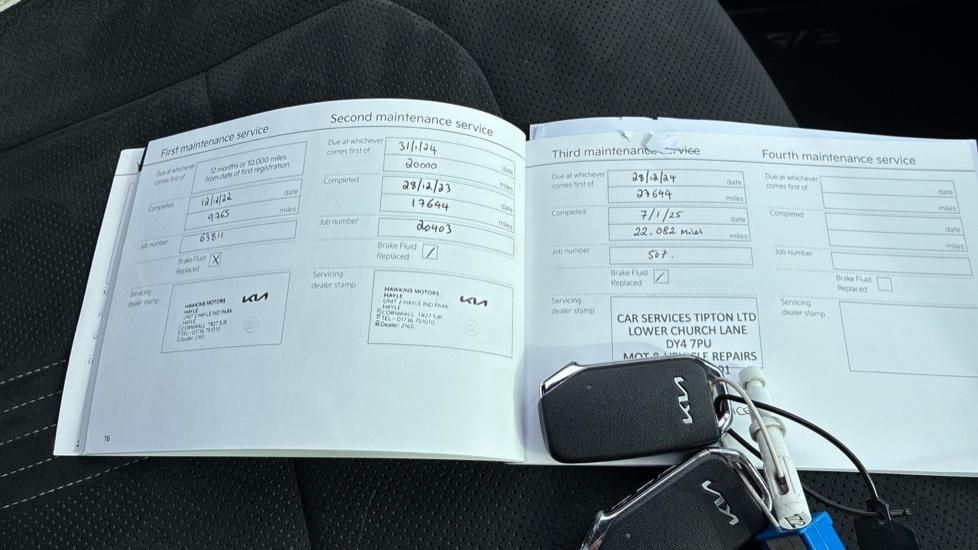 First maintenance service
Due at whichever
comes first of
12 months or 10,000 miles
from date of first registration
Completed
12/12/22 date
9765 miles
Job number
63811
Brake Fluid
Replaced X
Servicing
dealer stamp
HAWKINS MOTORS
HAYLE
UNIT 2 HAYLE IND PARK
HAYLE
CORNWALL TR27 5JR
TEL:- 01736 751010
Dealer: 2165
KIA
16
Second maintenance service
Due at whichever
comes first of
31/1/24 date
20000 miles
Completed
28/12/23 date
17644 miles
Job number
20403
Brake Fluid
Replaced /
Servicing
dealer stamp
HAWKINS MOTORS
HAYLE
UNIT 2 HAYLE IND PARK
HAYLE
CORNWALL TR27 5JR
TEL:- 01736 751010
Dealer: 2165
KIA
Third maintenance service
Due at whichever
comes first of
28/12/24 date
27644 miles
Completed
7/1/25 date
22,082 miles miles
Job number
507.
Brake Fluid
Replaced /
Servicing
dealer stamp
CAR SERVICES TIPTON LTD
LOWER CHURCH LANE
DY4 7PU
MOT & VEHICLE REPAIRS
Fourth maintenance service
Due at whichever
comes first of
date
miles
Completed
date
miles
Job number
Brake Fluid
Replaced
Servicing
dealer stamp
KIA
KIA